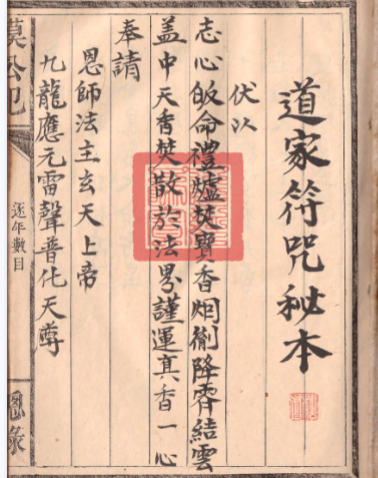 道家符咒秘本
伏以
志心皈命禮爐焚寶香降結雲
蓋中天香焚散於法界謹運真香一心
奉請
恩師法主玄天上帝
九龍應元雷聲普化天尊
逐年數目